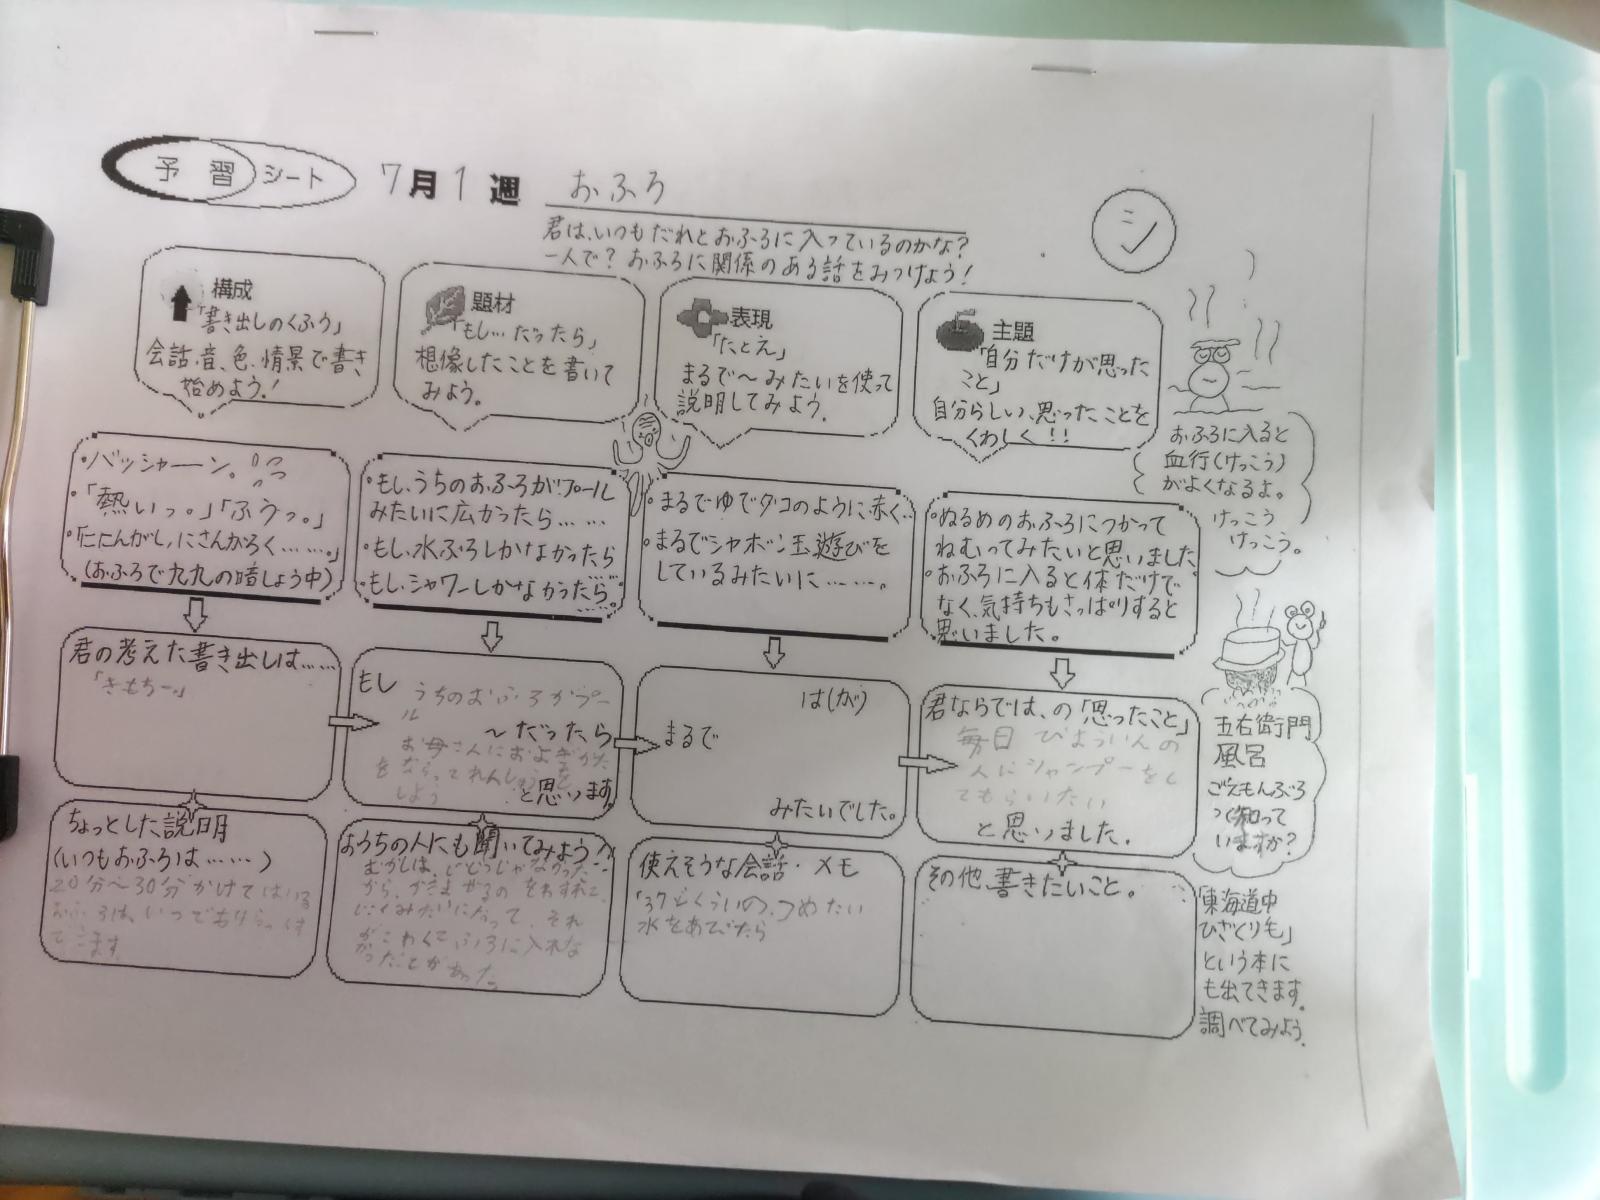 予習シート 7月1週 おふろ
シ
君は、いつもだれとおふろに入っているのかな?
一人で?おふろに関係のある話をみつけよう!
構成
「書き出しのくふう」
会話、音、色、情景で書き
始めよう!
題材
「もし…だったら」
想像したことを書いて
みよう。
表現
「たとえ」
まるで〜みたいを使って
説明してみよう。
主題
「自分だけが思った
こと」
自分らしい、思ったことを
くわしく!!
・バッシャーン。
・「熱いっ。」「ふうっ。」
・「ににんがし、にさんがろく……。」
(おふろで九九の暗しょう中)
・もし、うちのおふろがプール
みたいに広かったら……
・もし、水ぶろしかなかったら
・もし、シャワーしかなかったら。
・まるでゆでダコのように赤く…
・まるでシャボン玉遊びを
しているみたいに……。
・ぬるめのおふろにつかって
ねむってみたいと思いました
・おふろに入ると体だけで
なく、気持ちもさっぱりすると
思いました。
おふろに入ると
血行(けっこう)
がよくなるよ。
けっこう
けっこう。
君の考えた書き出しは……
「きもちー。」
もし
うちのおふろがプー
ル
〜だったら
お母さんにおよぎかた
をならってれんしゅうを
しよう
と思います。
は(が)
まるで
みたいでした。
君ならでは、の「思ったこと」
毎日 びよういんの
人にシャンプーをし
てもらいたい
と思いました。
五右衛門
風呂
ごえもんぶろ
って知って
いますか?
ちょっとした説明
(いつもおふろは……)
20分〜30分かけてはいる
おふろは、いつでも
ます
おうちの人にも聞いてみよう!
むかしは、じどうじゃなかった
から、かきまぜるの をわすれて、
じごくみたいになって、それ
がこわくてふろに入れな
かった
使えそうな会話・メモ
「37 くらいの、つめたい
水をあびたら
その他、書きたいこと。
「東海道中
ひざくり毛」
という本に
も出てきます。
調べてみよう。